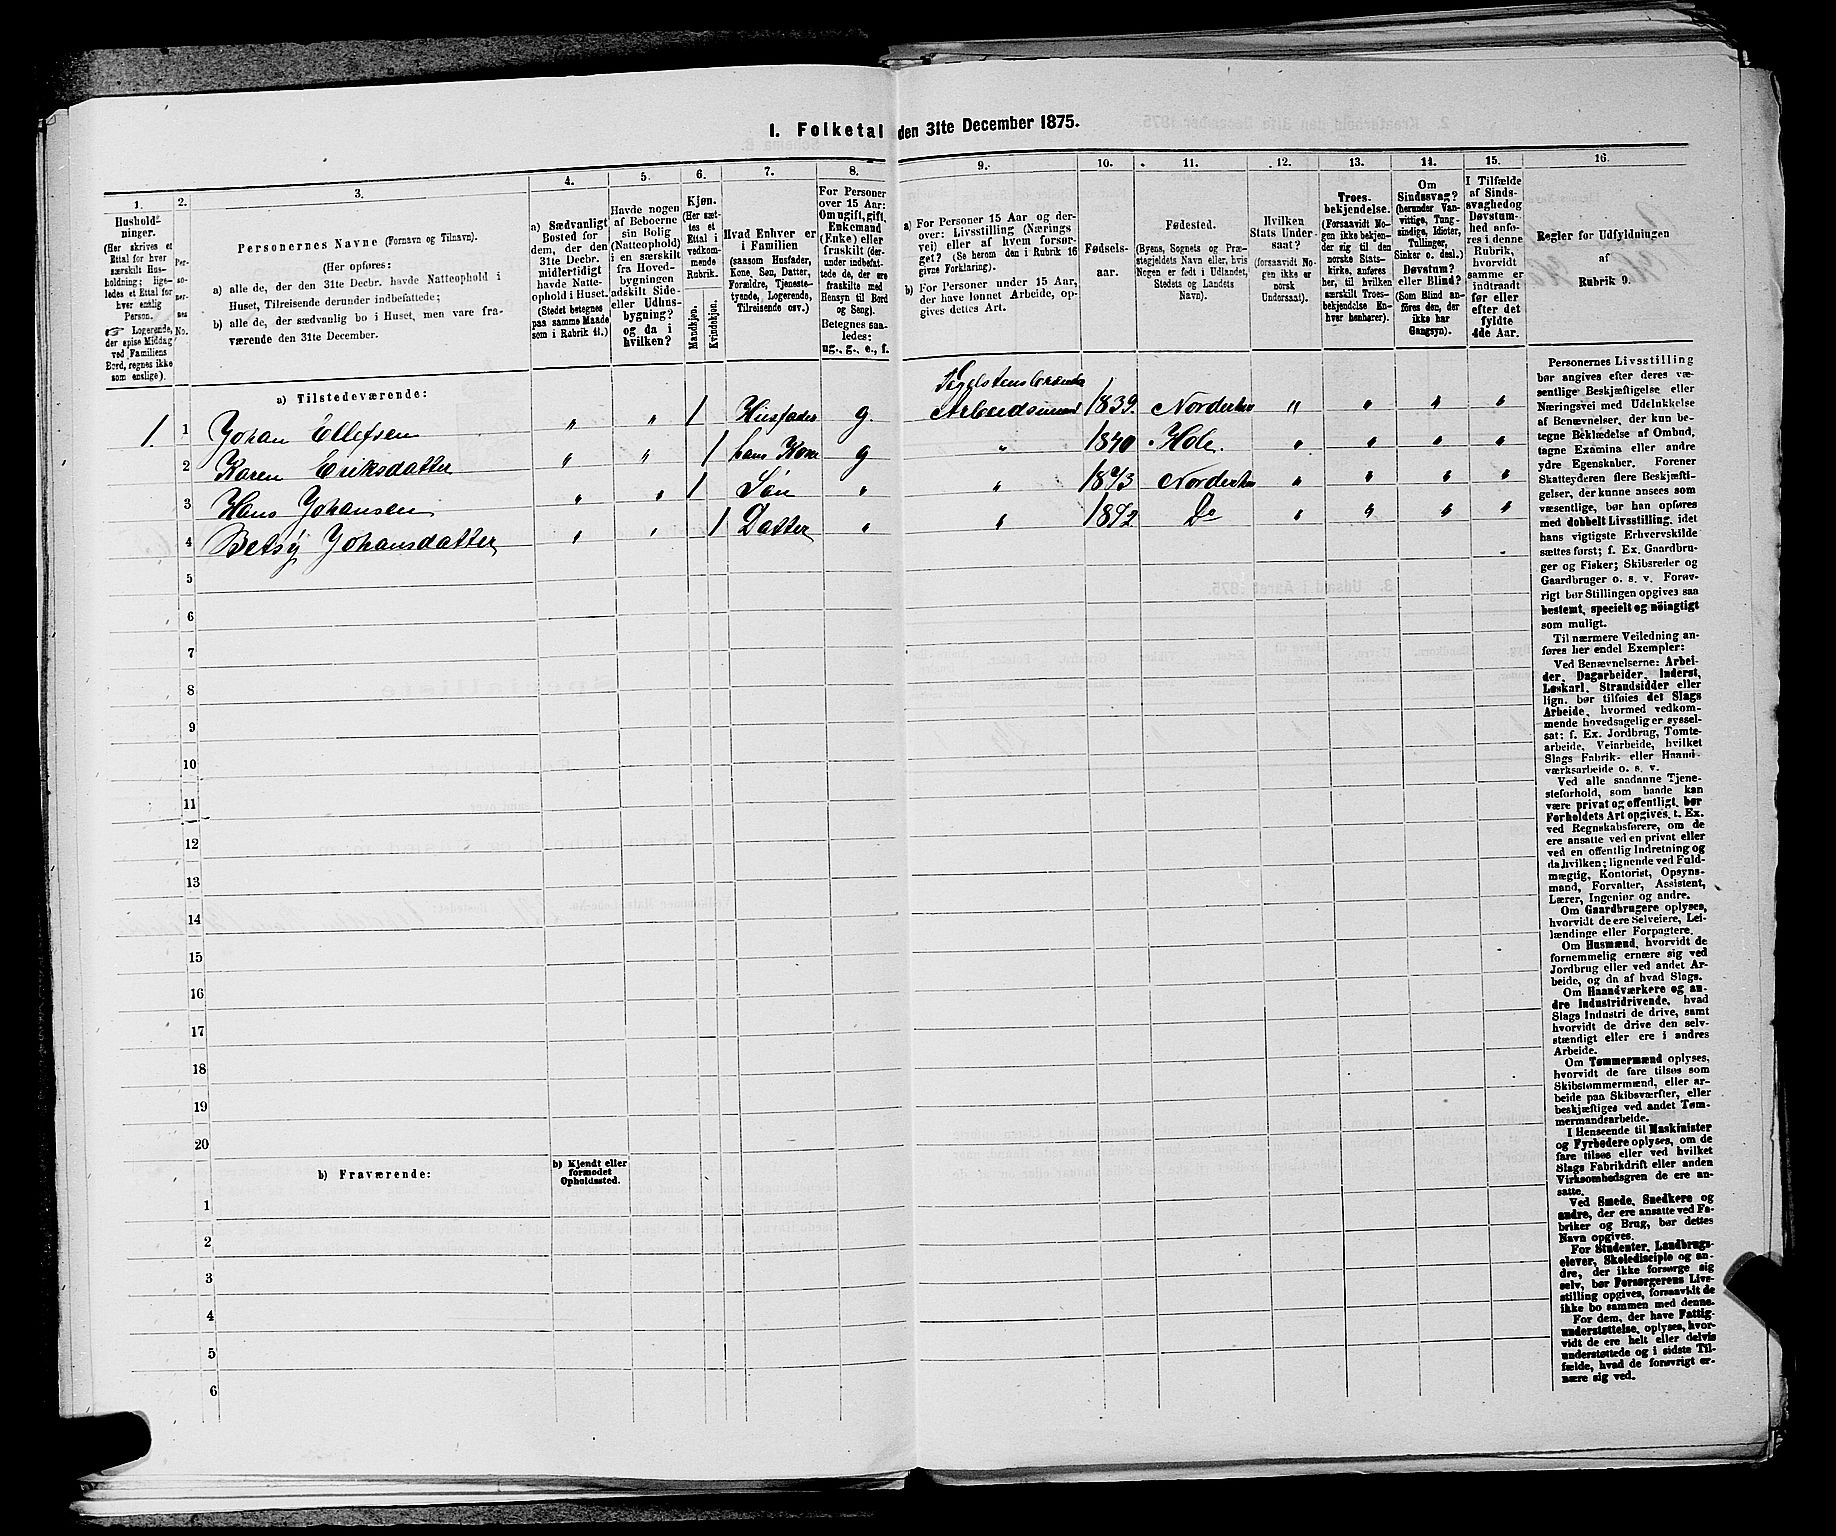 I. Folketal den 31te December 1875.
1.
Hushold-
ninger.
(Her skrives et
Ettal for hver
særskilt Hus-
holdning; lige-
ledes et Ettal for
hver enslig
Person.
☞ Logerende,
der spise Middag
ved Familiens
Bord, regnes ikke
som enslige).
2.
Per-
so-
ner-
nes
No.
3.
Personernes Navne (Fornavn og Tilnavn).
(Her opføres:
a) alle de, der den 31te Decbr. havde Natteophold i
Huset, Tilreisende derunder indbefattede;
b) alle de, der sædvanlig bo i Huset, men vare fra-
værende den 31te December.
4.
a) Sædvanligt
Bosted for
dem, der den
31te Decbr.
midlertidigt
havde Natte-
ophold i Huset.
(Stedet betegnes
paa samme Maade
som i Rubrik 11.)
5.
Havde nogen
af Beboerne
sin Bolig
(Natteophold)
i en særskilt
fra Hoved-
bygningen
adskilt Side-
eller Udhus-
bygning?
og da i
hvilken?
6.
Kjøn.
(Her sæt-
tes et
Ettal i
vedkom-
mende
Rubrik.
Mandkjøn.
Kvindekjøn.
7.
Hvad Enhver er
i Familien
(saasom Husfader,
Kone, Søn, Datter,
Forældre, Tjeneste-
tyende, Logerende,
Tilreisende osv.)
8.
For Personer
over 15 Aar:
Om ugift, gift,
Enkemand
(Enke) eller
fraskilt (der-
under indbefat-
tede de, der ere
fraskilte med
Hensyn til Bord
og Seng).
Betegnes saa-
ledes:
ug., g., e., f.
9.
a) For Personer 15 Aar og der-
over: Livsstilling (Nærings
vei) eller af hvem forsør-
get? (Se herom den i Rubrik 16
givne Forklaring).
b) For Personer under 15 Aar,
der have lønnet Arbeide, op-
gives dettes Art.
10.
Fødsels-
aar.
11.
Fødested.
(Byens, Sognets og Præ-
stegjeldets Navn eller, hvis
Nogen er født i Udlandet,
Stedets og Landets
Navn).
12.
Hvilken
Stats Under-
saat?
(forsaavidt No-
gen ikke er
norsk
Undersaat).
13.
Troes-
bekjendelse.
(Forsaavidt No-
gen ikke bekjen-
der sig til den
norske Stats-
kirke, anføres
her, til hvilken
særskilt Troes-
bekjendelse En-
hver henhører).
14.
Om
Sindssvag?
(herunder Van-
vittige, Tung-
sindige, Idioter,
Tullinger,
Sinker o. desl.)
Døvstum?
eller Blind?
(Som Blind an-
føres den, der
ikke har
Gangsyn).
15.
I Tilfælde
af Sinds-
svaghed og
Døvstum-
hed anfø-
res i denne
Rubrik,
hvorvidt
samme er
indtraadt
før eller
efter det
fyldte
4de Aar.
16.
Regler for Udfyldningen
af
Rubrik 9.
a) Tilstedeværende:
Teglstensbrænder
1. 1 Johan Ellefsen " " 1 Husfader g. Arbeidsmand 1839. Norderhov " " " "
2 Karen Eriksdatter " " 1 hans Kone g " 1840 Hole. " " " "
3 Hans Johansen " " 1 Søn " " 1873 Norderhov " " " "
4 Betsÿ Johansdatter " " 1 Datter " " 1872 Do " " " "
5
6
7
8
9
10
11
12
13
14
15
16
17
18
19
20
b) Fraværende:
b) Kjendt eller
formodet
Opholdssted.
1
2
3
4
5
6
Personernes Livsstilling
bør angives efter deres væ-
sentlige Beskjæftigelse eller
Næringsvei med Udelukkelse
af Benævnelser, der kun be-
tegne Beklædelse af Ombud,
tagne Examina eller andre
ydre Egenskaber. Forener
Skatteyderen flere Beskjæfti-
gelser, der kunne ansees som
væsentlige, bør han opføres
med dobbelt Livsstilling, idet
hans vigtigste Erhvervskilde
sættes først; f. Ex. Gaardbru-
ger og Fisker; Skibsreder og
Gaardbruger o. s. v. Forøv-
rigt bør Stillingen opgives saa
bestemt, specielt og nöiagtigt
som muligt.
Til nærmere Veiledning an-
føres her endel Exempler:
Ved Benævnelserne: Arbei-
der, Dagarbeider, Inderst,
Løskarl, Strandsidder eller
lign. bør tilføies det Slags
Arbeide, hvormed vedkom-
mende hovedsagelig er syssel-
sat; f. Ex. Jordbrug, Tomte-
arbeide, Veiarbeide, hvilket
Slags Fabrik- eller Haand-
værksarbeide o. s. v.
Ved alle saadanne Tjene-
steforhold, som baade kan
være privat og offentligt, bør
Forholdets Art opgives, t. Ex.
ved Regnskabsførere, om de
ere ansatte ved en privat eller
ved en offentlig Indretning og
da hvilken; lignende ved Fuld-
mægtig, Kontorist, Opsyns-
mand, Forvalter, Assistent,
Lærer, Ingeniør og andre.
Om Gaardbrugere oplyses,
hvorvidt de ere Selveiere, Lei-
lændinge eller Forpagtere.
Om Husmænd, hvorvidt de
fornemmelig ernære sig ved
Jordbrug eller ved andet Ar-
beide, og da af hvad Slags.
Om Haandværkere og an-
dre Industridrivende, hvad
Slags Industri de drive, samt
hvorvidt de drive den selv-
stændigt eller ere i andres
Arbeide.
Om Tømmermænd oplyses,
hvorvidt de fare tilsøs som
Skibstømmermænd, eller ar-
beide paa Skibsværfter, eller
beskjæftiges ved andet Tøm-
mermandsarbeide.
I Henseende til Maskinister
og Fyrbødere oplyses, om de
fare tilsøs eller ved hvilket
Slags Fabrikdrift eller anden
Virksomhedsgren de ere an-
satte.
Ved Smede, Snedkere og
andre, der ere ansatte ved Fa-
briker og Brug, bør dettes
Navn opgives.
For Studenter, Landbrugs-
elever, Skoledisciple og an-
dre, der ikke forsørge sig
selv, bør Forsørgerens Livs-
stilling opgives, forsaavidt de
ikke bo sammen med denne.
For dem, der have Fattig-
understøttelse, oplyses, hvor-
vidt de ere helt eller delvis
understøttede og i sidste Til-
fælde, hvad de forøvrigt er-
nære sig ved.